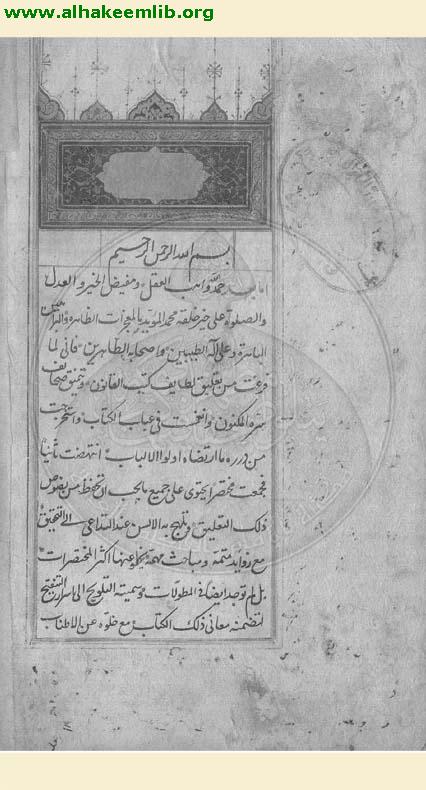 www.alhakeemlib.org
بسم الله الرحمن الرحيم
اما بعد حمدا لله واهب العقل ومفيض الخير والعدل
والصلوة على خير خلقه محمد المؤيد بالمعجزات الطاهرة والبراهين
الباهرة وعلى آله الطيبين واصحابه الطاهرين فانى لما
فرغت من تعليق لطايف كتب القانون وتنميق صحايف
سره المكنون وانغمست فى عباب الكتاب واستخرجت
من درره ما ارتضاه اولوا الالباب انتهضت ثانيا
فجمعت مختصرا يحتوى على جميع ما يجب ان يحفظ من نصوص
ذلك التعليق وتلهج به الالسن عند التداعى الى التحقيق
مع زوايد متممة ومباحث مهمة يخلو عنها اكثر المختصرات
بل لم توجد ايضا فى المطولات وسميته التلويح الى اسرار التنقيح
لتضمنه معانى ذلك الكتاب مع خلوه عن الاطناب